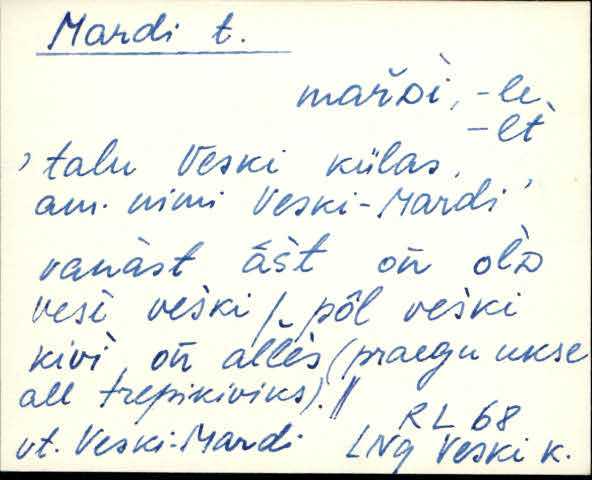 Mardi t.
maŕᴅì, -le
-lt̀
'talu Veski külas,
am. nimi Veski-Mardi'
vanàst āśt oñ olᴅ̀
vesì veśki /. pōl veśki
kivì oñ allès (praegu ukse
all trepikiviks). //
RL 68
vt. Veski-Mardi LNg Veski k.